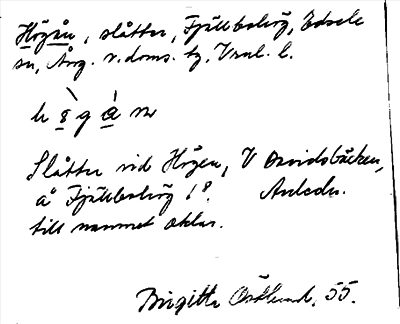 Högån, slåtter, Fjällbohög, Edsele
sn, Ång. v. doms. tg, Vnl. l.
h ö̀ g å̀ n
Slåtter vid Högen, V Davidsbäcken,
å Fjällbohög 1:8. Anledn.
till namnet oklar.
Birgitta Östlund, 55.